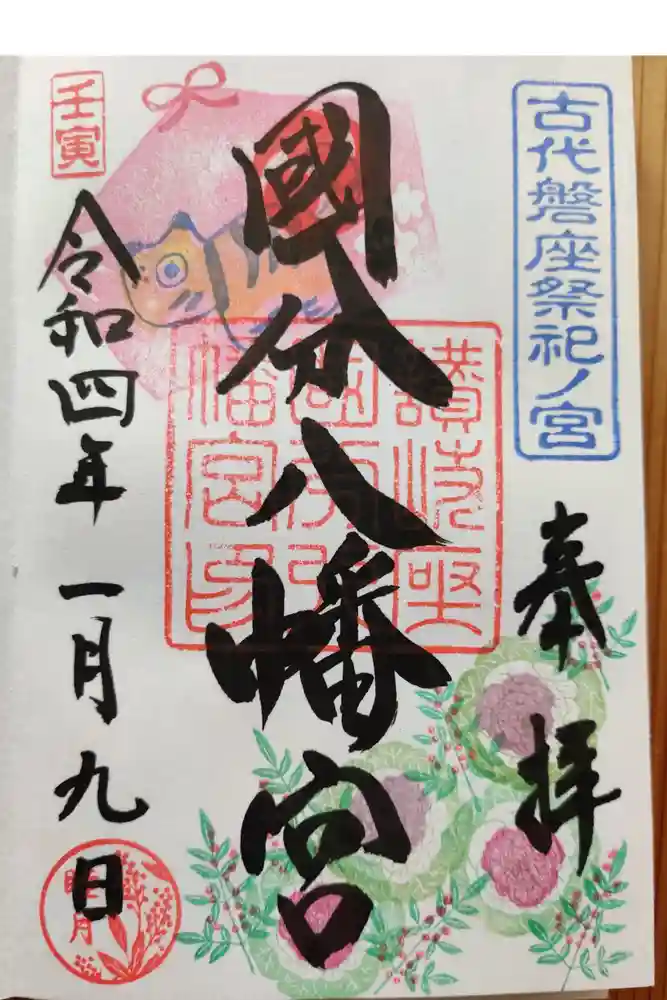 古代磐座祭祀ノ宮
奉拝
國分八幡宮
讃岐坐
國分八
幡宮印
壬寅
令和四年一月九日
睦月